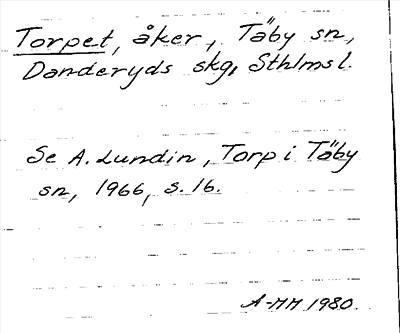 Torpet, åker, Täby sn,
Danderyds skg, Sthlms l.
Se A. Lundin, Torp i Täby
sn, 1966, s. 16.
A-MM 1980.